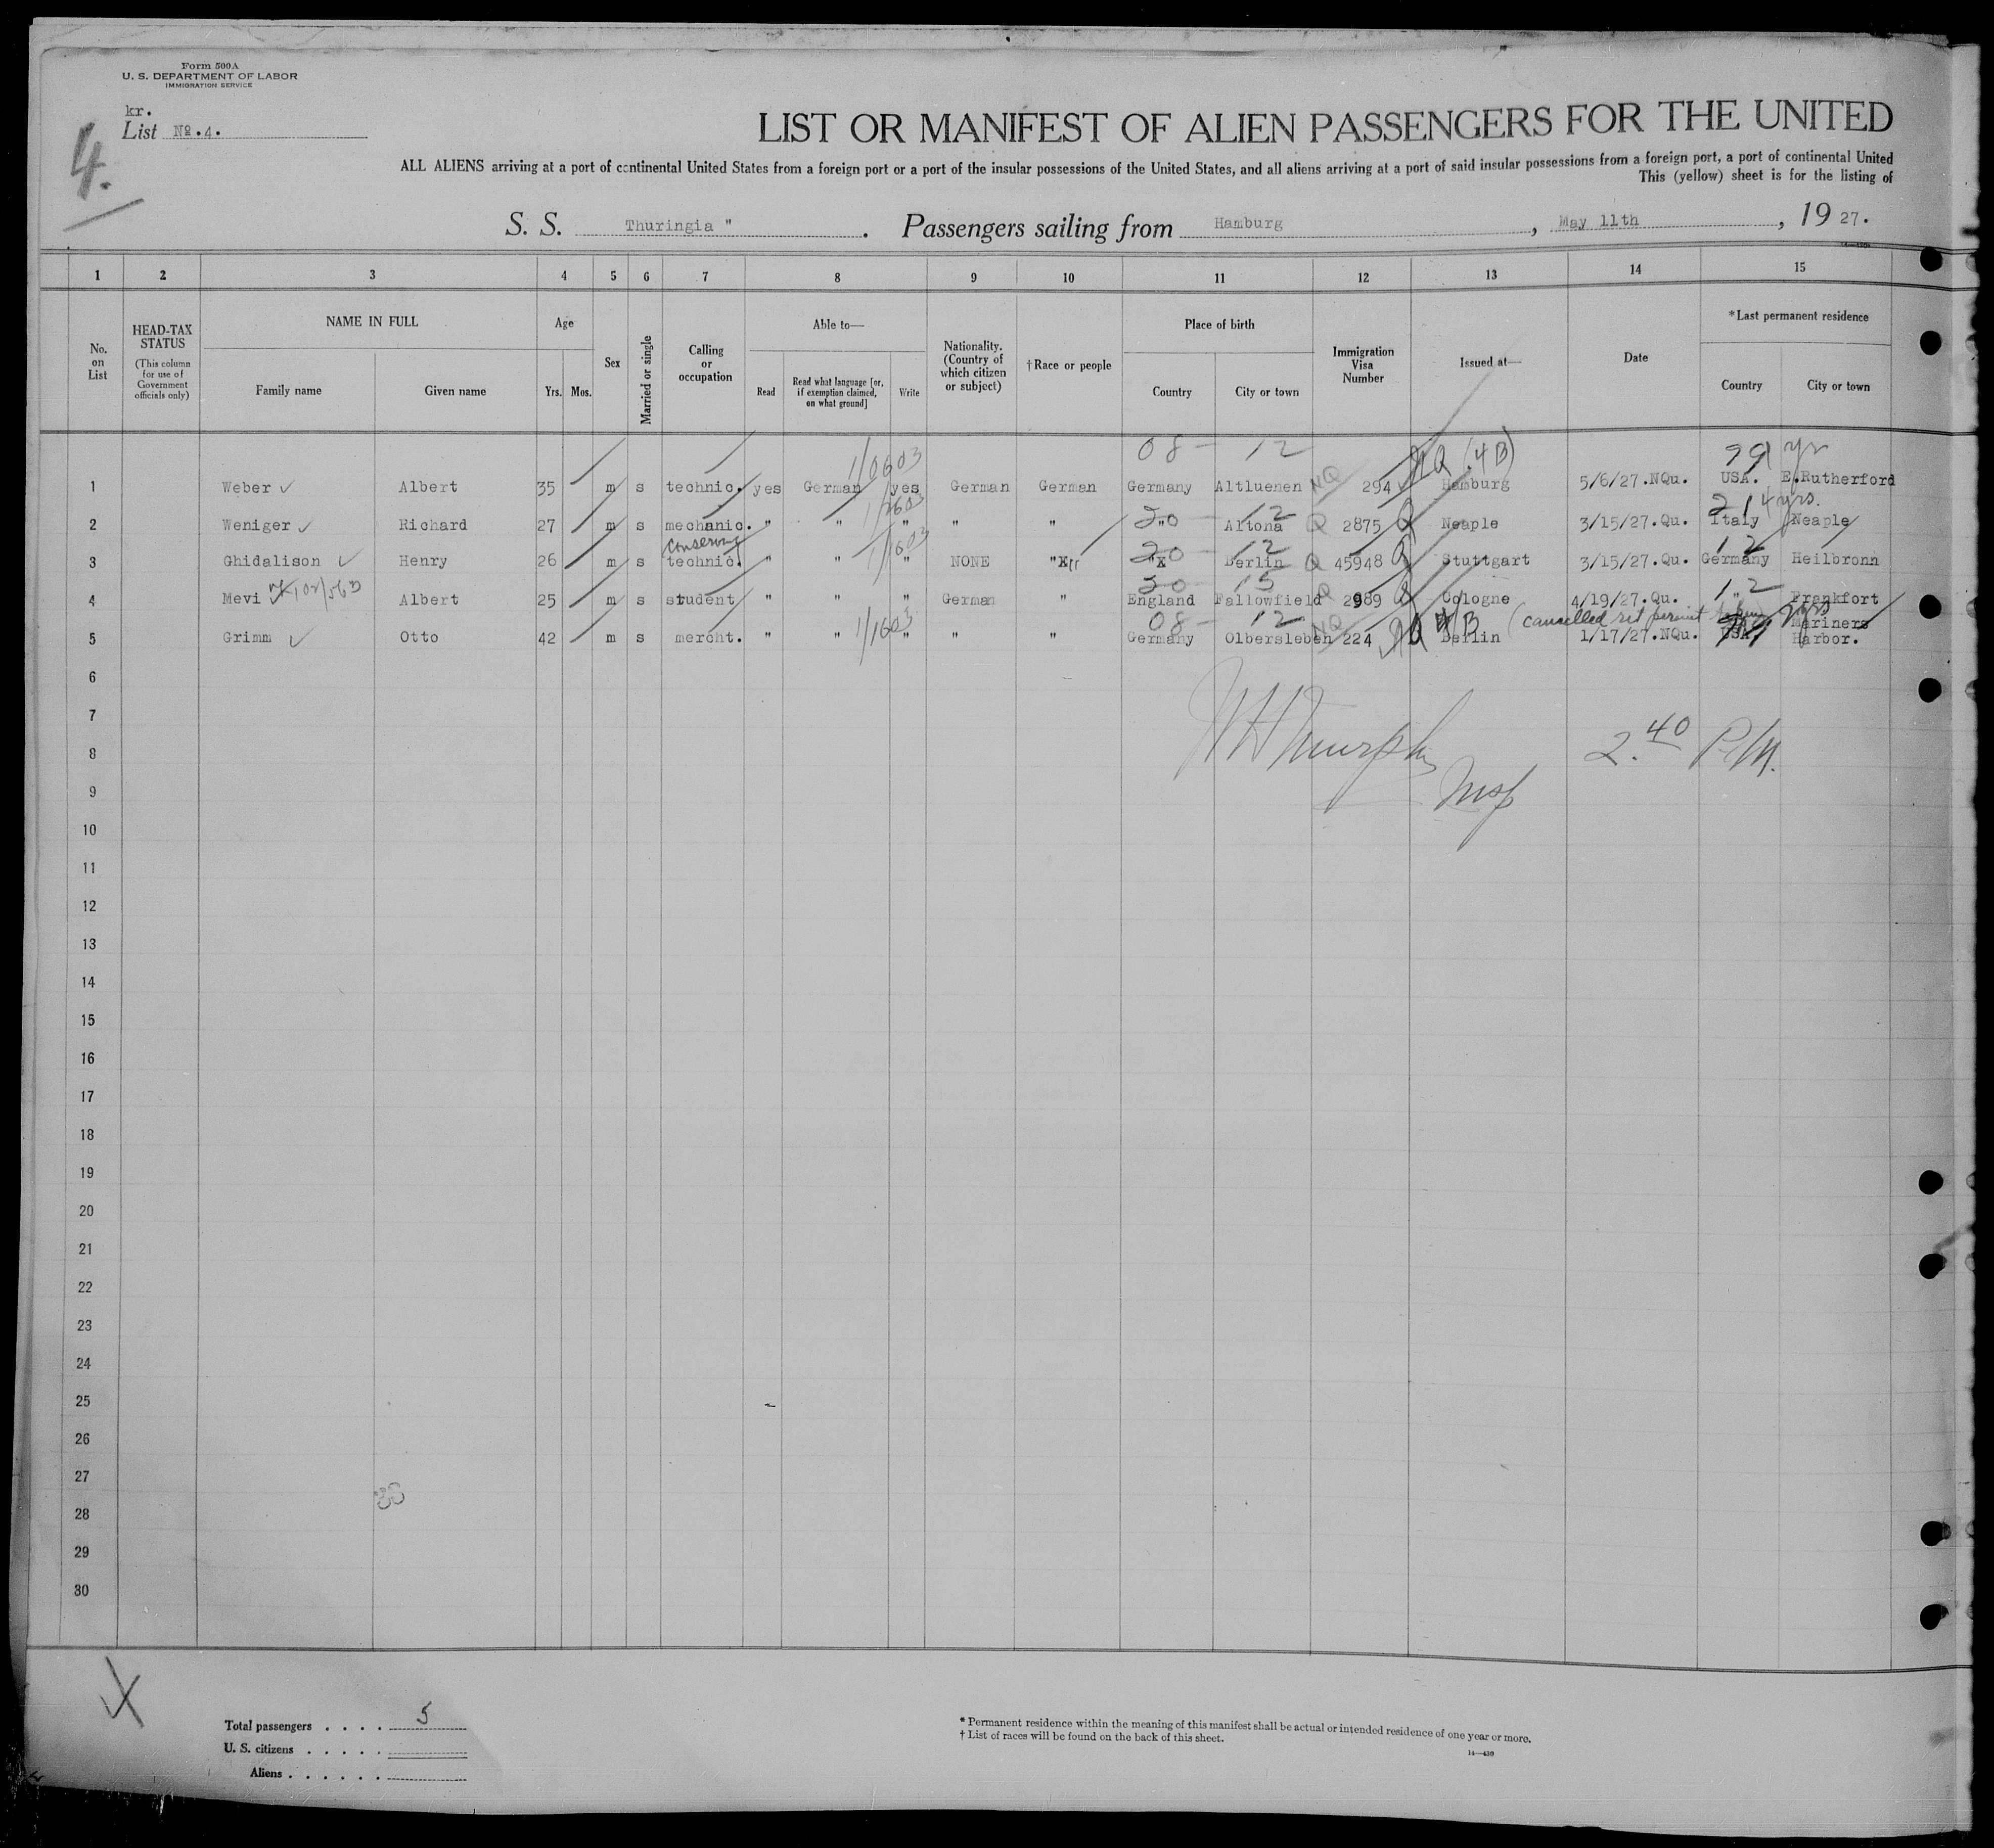 Form 500A
U. S. DEPARTMENT OF LABOR
IMMIGRATION SERVICE
kr.
List No. 4.
4.
LIST OR MANIFEST OF ALIEN PASSENGERS FOR THE UNITED
ALL ALIENS arriving at a port of continental United States from a foreign port or a port of the insular possessions of the United States, and all aliens arriving at a port of said insular possessions from a foreign port, a port of continental United
This (yellow) sheet is for the listing of
S. S. Thuringia ". Passengers sailing from Hamburg, May 11th, 19 27.
1 2 3 4 5 6 7 8 9 10 11 12 13 14 15
No. on List
HEAD-TAX STATUS (This column for use of Government officials only)
NAME IN FULL
Family name Given name
Age
Yrs. Mos.
Sex
Married or single
Calling or occupation
Able to—
Read Read what language [or, if exemption claimed, on what ground] Write
Nationality. (Country of which citizen or subject)
†Race or people
Place of birth
Country City or town
Immigration Visa Number
Issued at—
Date
*Last permanent residence
Country City or town
08 - 12 NQ (4B) 99 yr
1 Weber Albert 35 m s technic. yes German yes German German Germany Altluenen NQ 294 Hamburg 5/6/27.NQu. USA. E.Rutherford
20 - 12 21 4 yrs.
2 Weniger Richard 27 m s mechanic. " " " " " " Altona Q 2875 Q Neaple 3/15/27.Qu. Italy Neaple
20 - 12 12
3 Ghidalison Henry 26 m s technic. " " " NONE "X "X Berlin Q 45948 Q Stuttgart 3/15/27.Qu. Germany Heilbronn
15 12
4 Mevi Albert 25 m s student " " " German " England Fallowfield Q 2989 Q Cologne 4/19/27.Qu. " Frankfort
08 - 12 4/B (cancelled ret permit taken 2 yrs
5 Grimm Otto 42 m s mercht. " " " " " Germany Olbersleben NQ 224 Berlin 1/17/27.NQu. USA Mariners Harbor.
6
7
8 Murphy 2.40 P.M.
9 Insp
10
11
12
13
14
15
16
17
18
19
20
21
22
23
24
25
26
27
28
29
30
Total passengers . . . . 5
U. S. citizens . . . . .
Aliens . . . . . .
* Permanent residence within the meaning of this manifest shall be actual or intended residence of one year or more.
† List of races will be found on the back of this sheet.
14—430